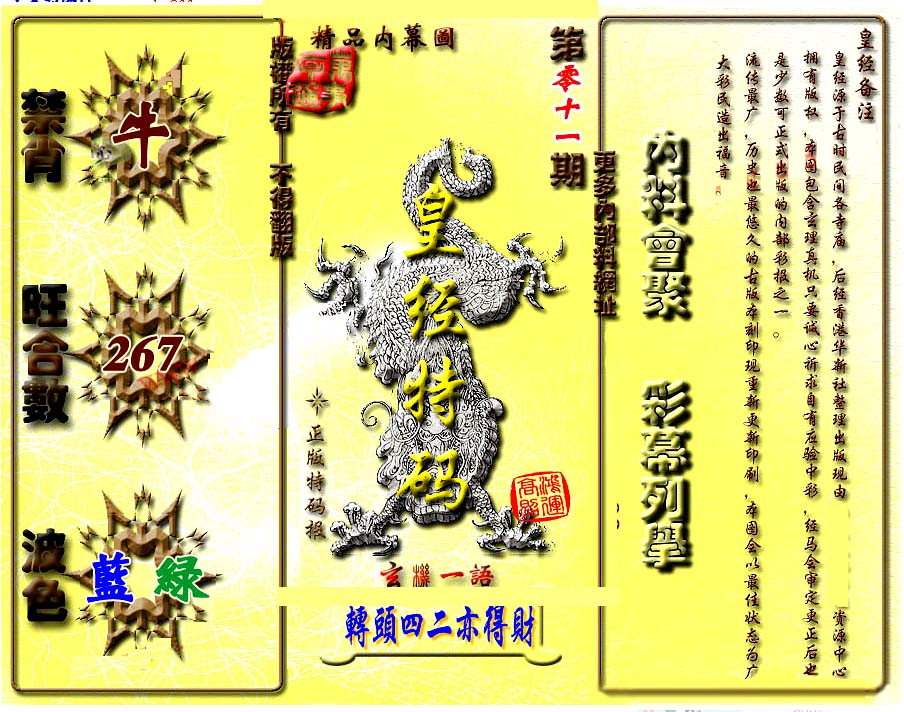 精品内幕圖
第零十一期
版權所有 不得翻版
禁肖
牛
旺合數
267
波色
藍 緑
皇经特码
正版特码报
鴻運高照
玄機一語
轉頭四二亦得財
更多內部料網址
內料會聚
彩幕列舉
皇经备注
皇经源于古时民间各寺庙，后经香港华新社整理出版现由 资源中心
拥有版权，本图包含玄理真机只要诚心祈求自有应验中彩，经马会审定更正后也
是少数可正式出版的内部彩报之一。
流传最广，历史也最悠久的古版本刻印现重新更新印刷，本图会以最佳状态为广
大彩民造出福音。